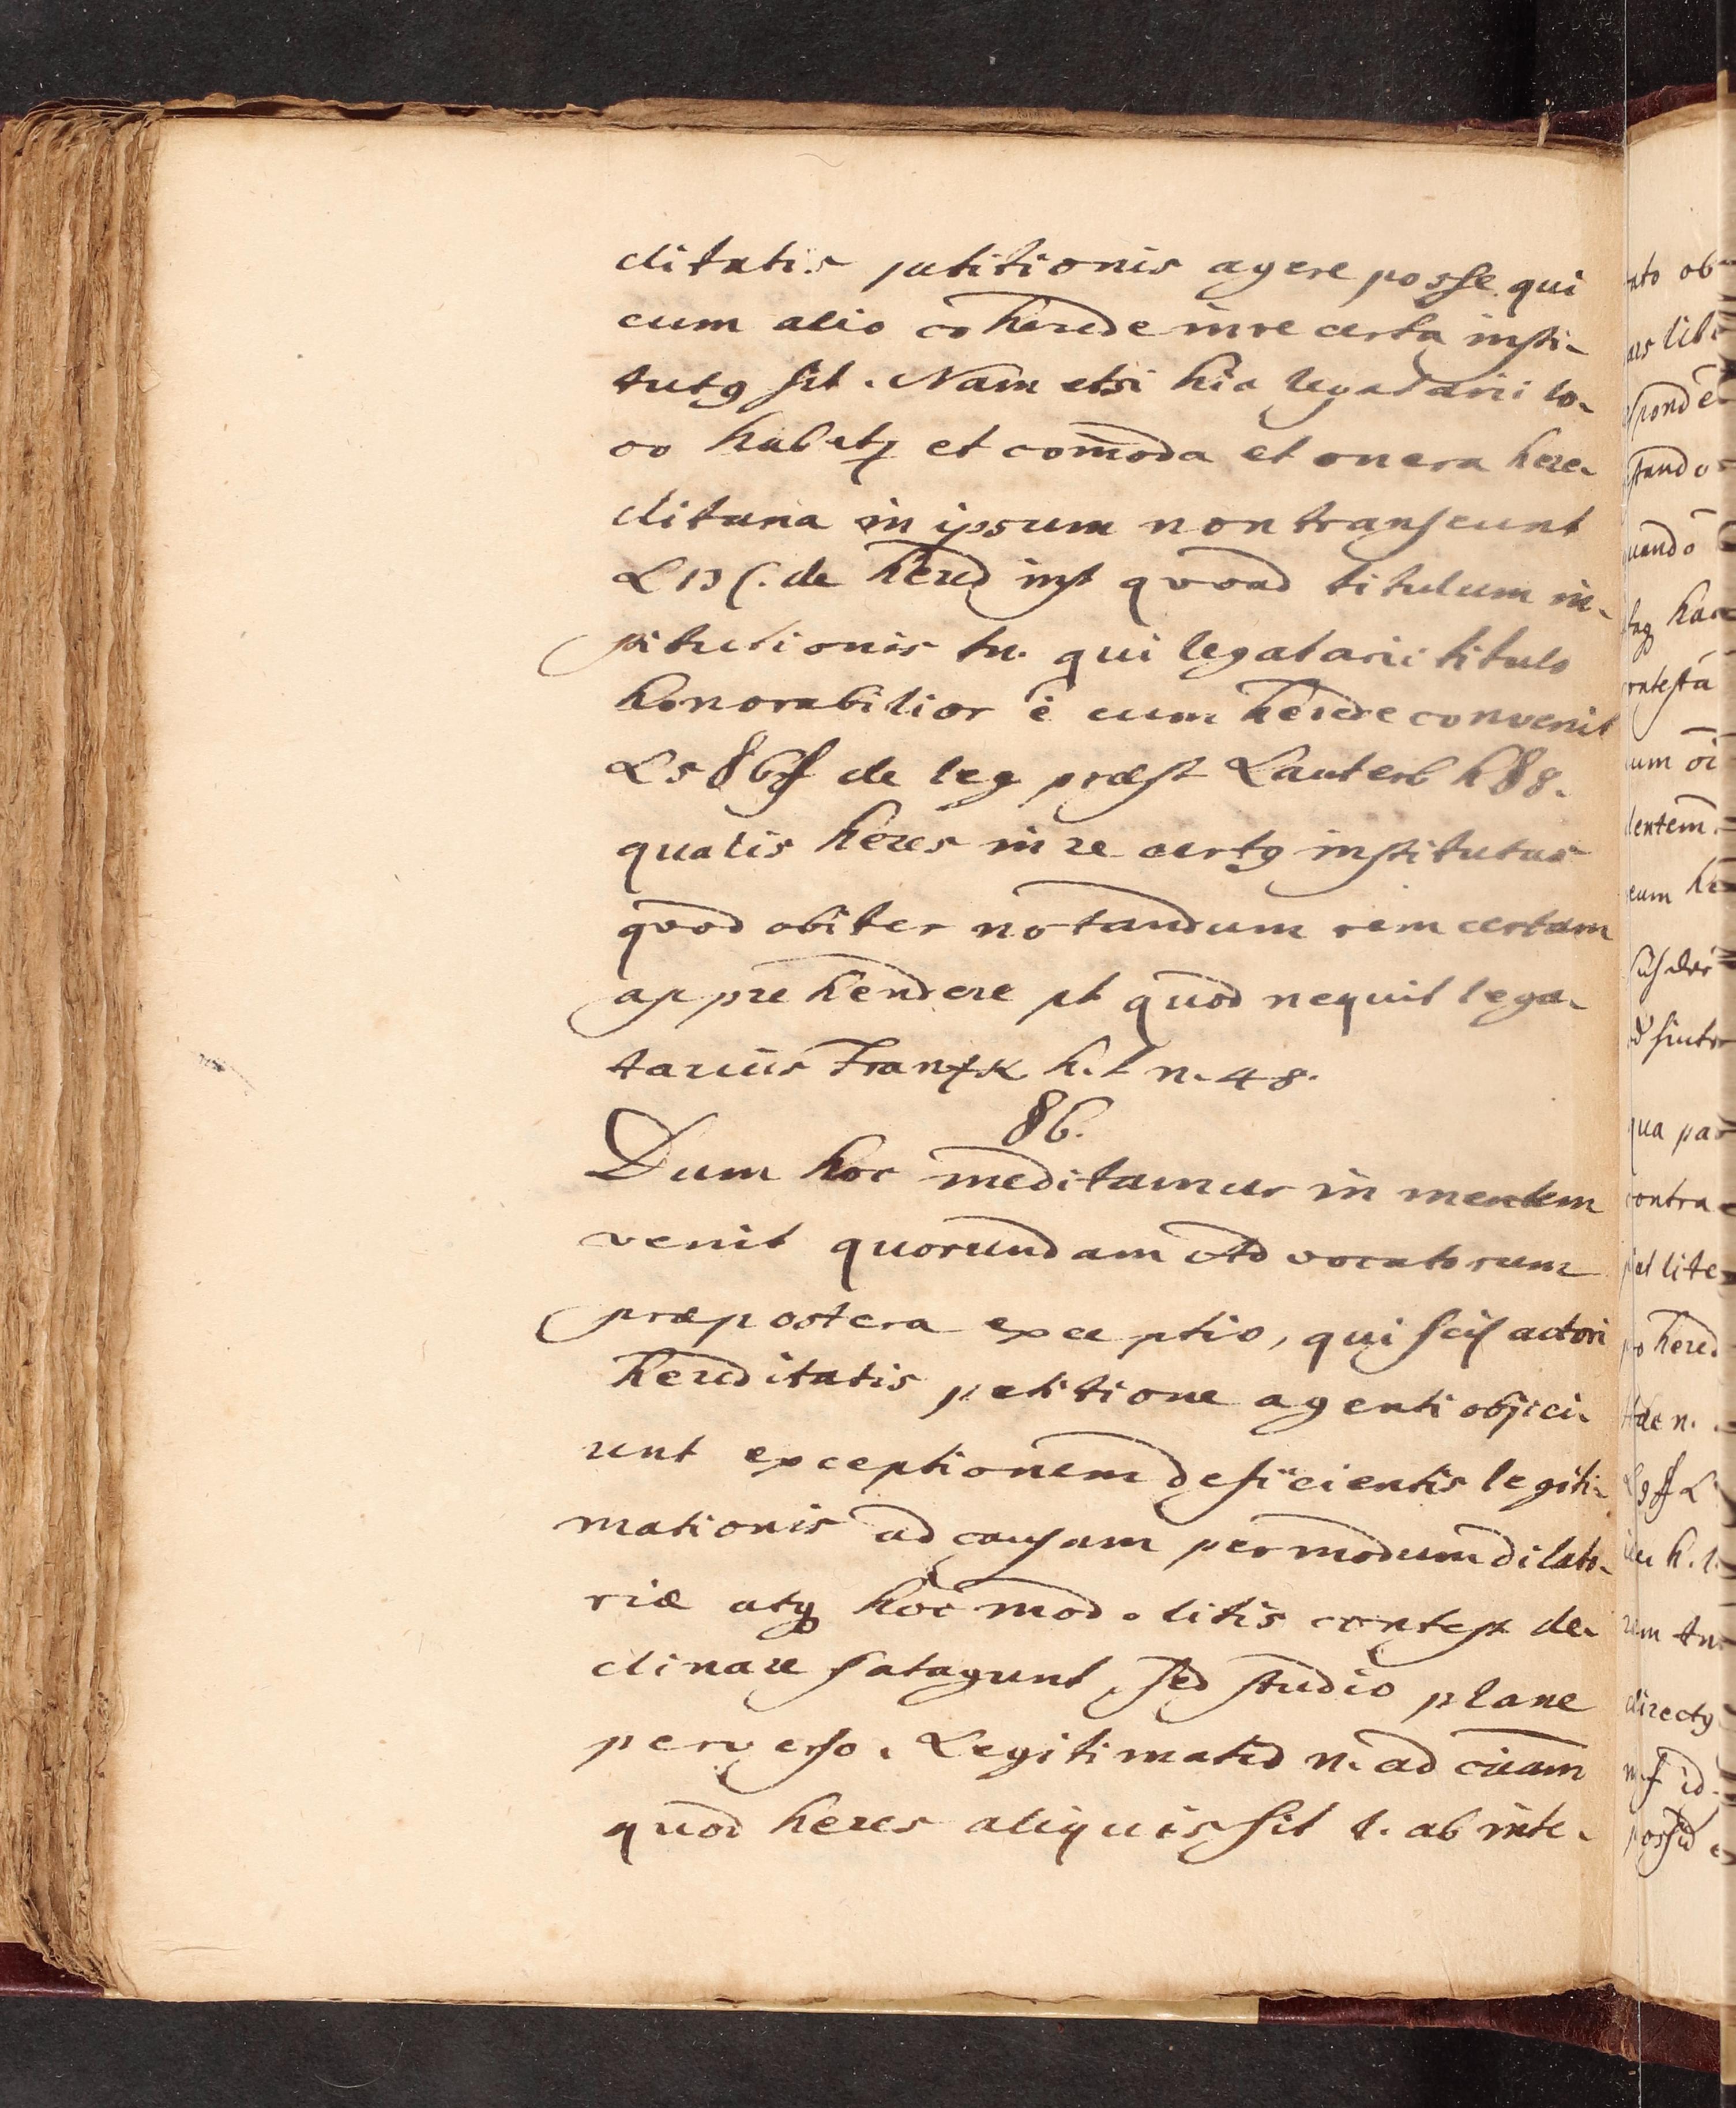 ditatis petitionis agere posse qui
cum alio coherede in re certa insti-
tutq sit. Nam etsi hic legatarii lo-
co habetq et com̄oda et onera here-
ditaria in ipsum non transeunt
L 13 C. de hered inst quoad titulum in-
stitutionis tn. qui legatarii titulo
honorabilior ē cum herede convenit
L 5 § 6 ff de leg præst Lauterb h § 8.
qualis heres in re certa institutus
quod obiter notandum rem certam
apprehendere pt quod nequit lega-
tarius Frantzk h. t n. 48.
§ 6.
Dum hoc meditamur in mentem
venit quorundam Advocatorum
præpostera exceptio, qui scil actori
hereditatis petitione agenti objici-
unt exceptionem deficientis legiti-
mationis ad causam per modum dilato-
riæ atq hoc modo litis contest de-
clinare satagunt, sed studio plane
perverso. Legitimatio n. ad cāam
quod heres aliquis sit t. ab inte-
ato ob
ars
spond
stando
quando
taq hæ
contesta
cum oi
dentem
eum
qua pa
contra
lite
hered
n.
h. t.
rem tn
directq
id
possid